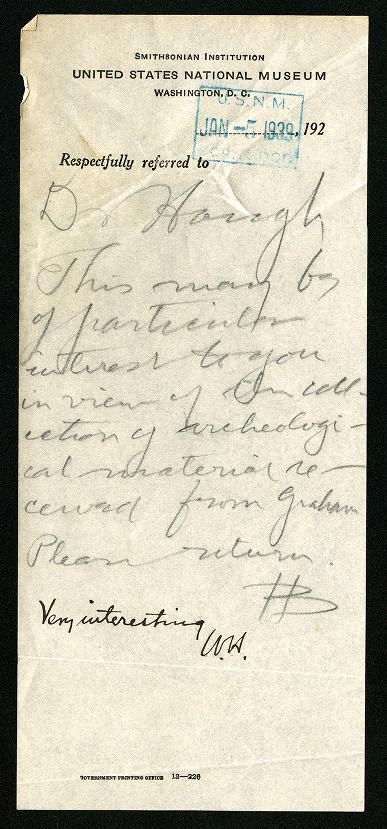 SMITHSONIAN INSTITUTION
UNITED STATES NATIONAL MUSEUM
WASHINGTON, D. C.
U.S.N.M.
JAN -5 1939, 192
Respectfully referred to
Dr Hough
This may be
of particular
interest to you
in view of the coll-
ection of archeologi-
cal material re-
ceived from Graham
Please return.
HB
Very interesting
W.H.
GOVERNMENT PRINTING OFFICE 13—226